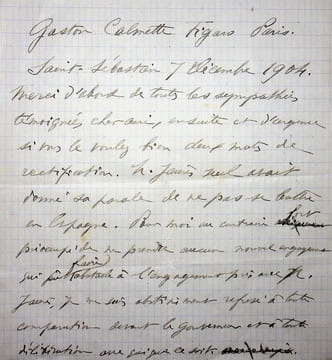 Gaston Calmette Figaro Paris.
Saint-Sébastien 7 décembre 1904.
Merci d'abord de toutes les sympathies
témoignées cher ami, ensuite et d'urgence
si vous le voulez bien deux mots de
rectification. M. Jaurès seul avait
donné sa parole de ne pas se battre
en Espagne. Pour moi au contraire
fort
préoccupé de ne prendre aucun nouvel engagement
qui à l'engagement pris avec M.
Jaurès, je me suis absolument refusé à toute
comparution devant le gouverneur et à toute
avec qui que ce soit